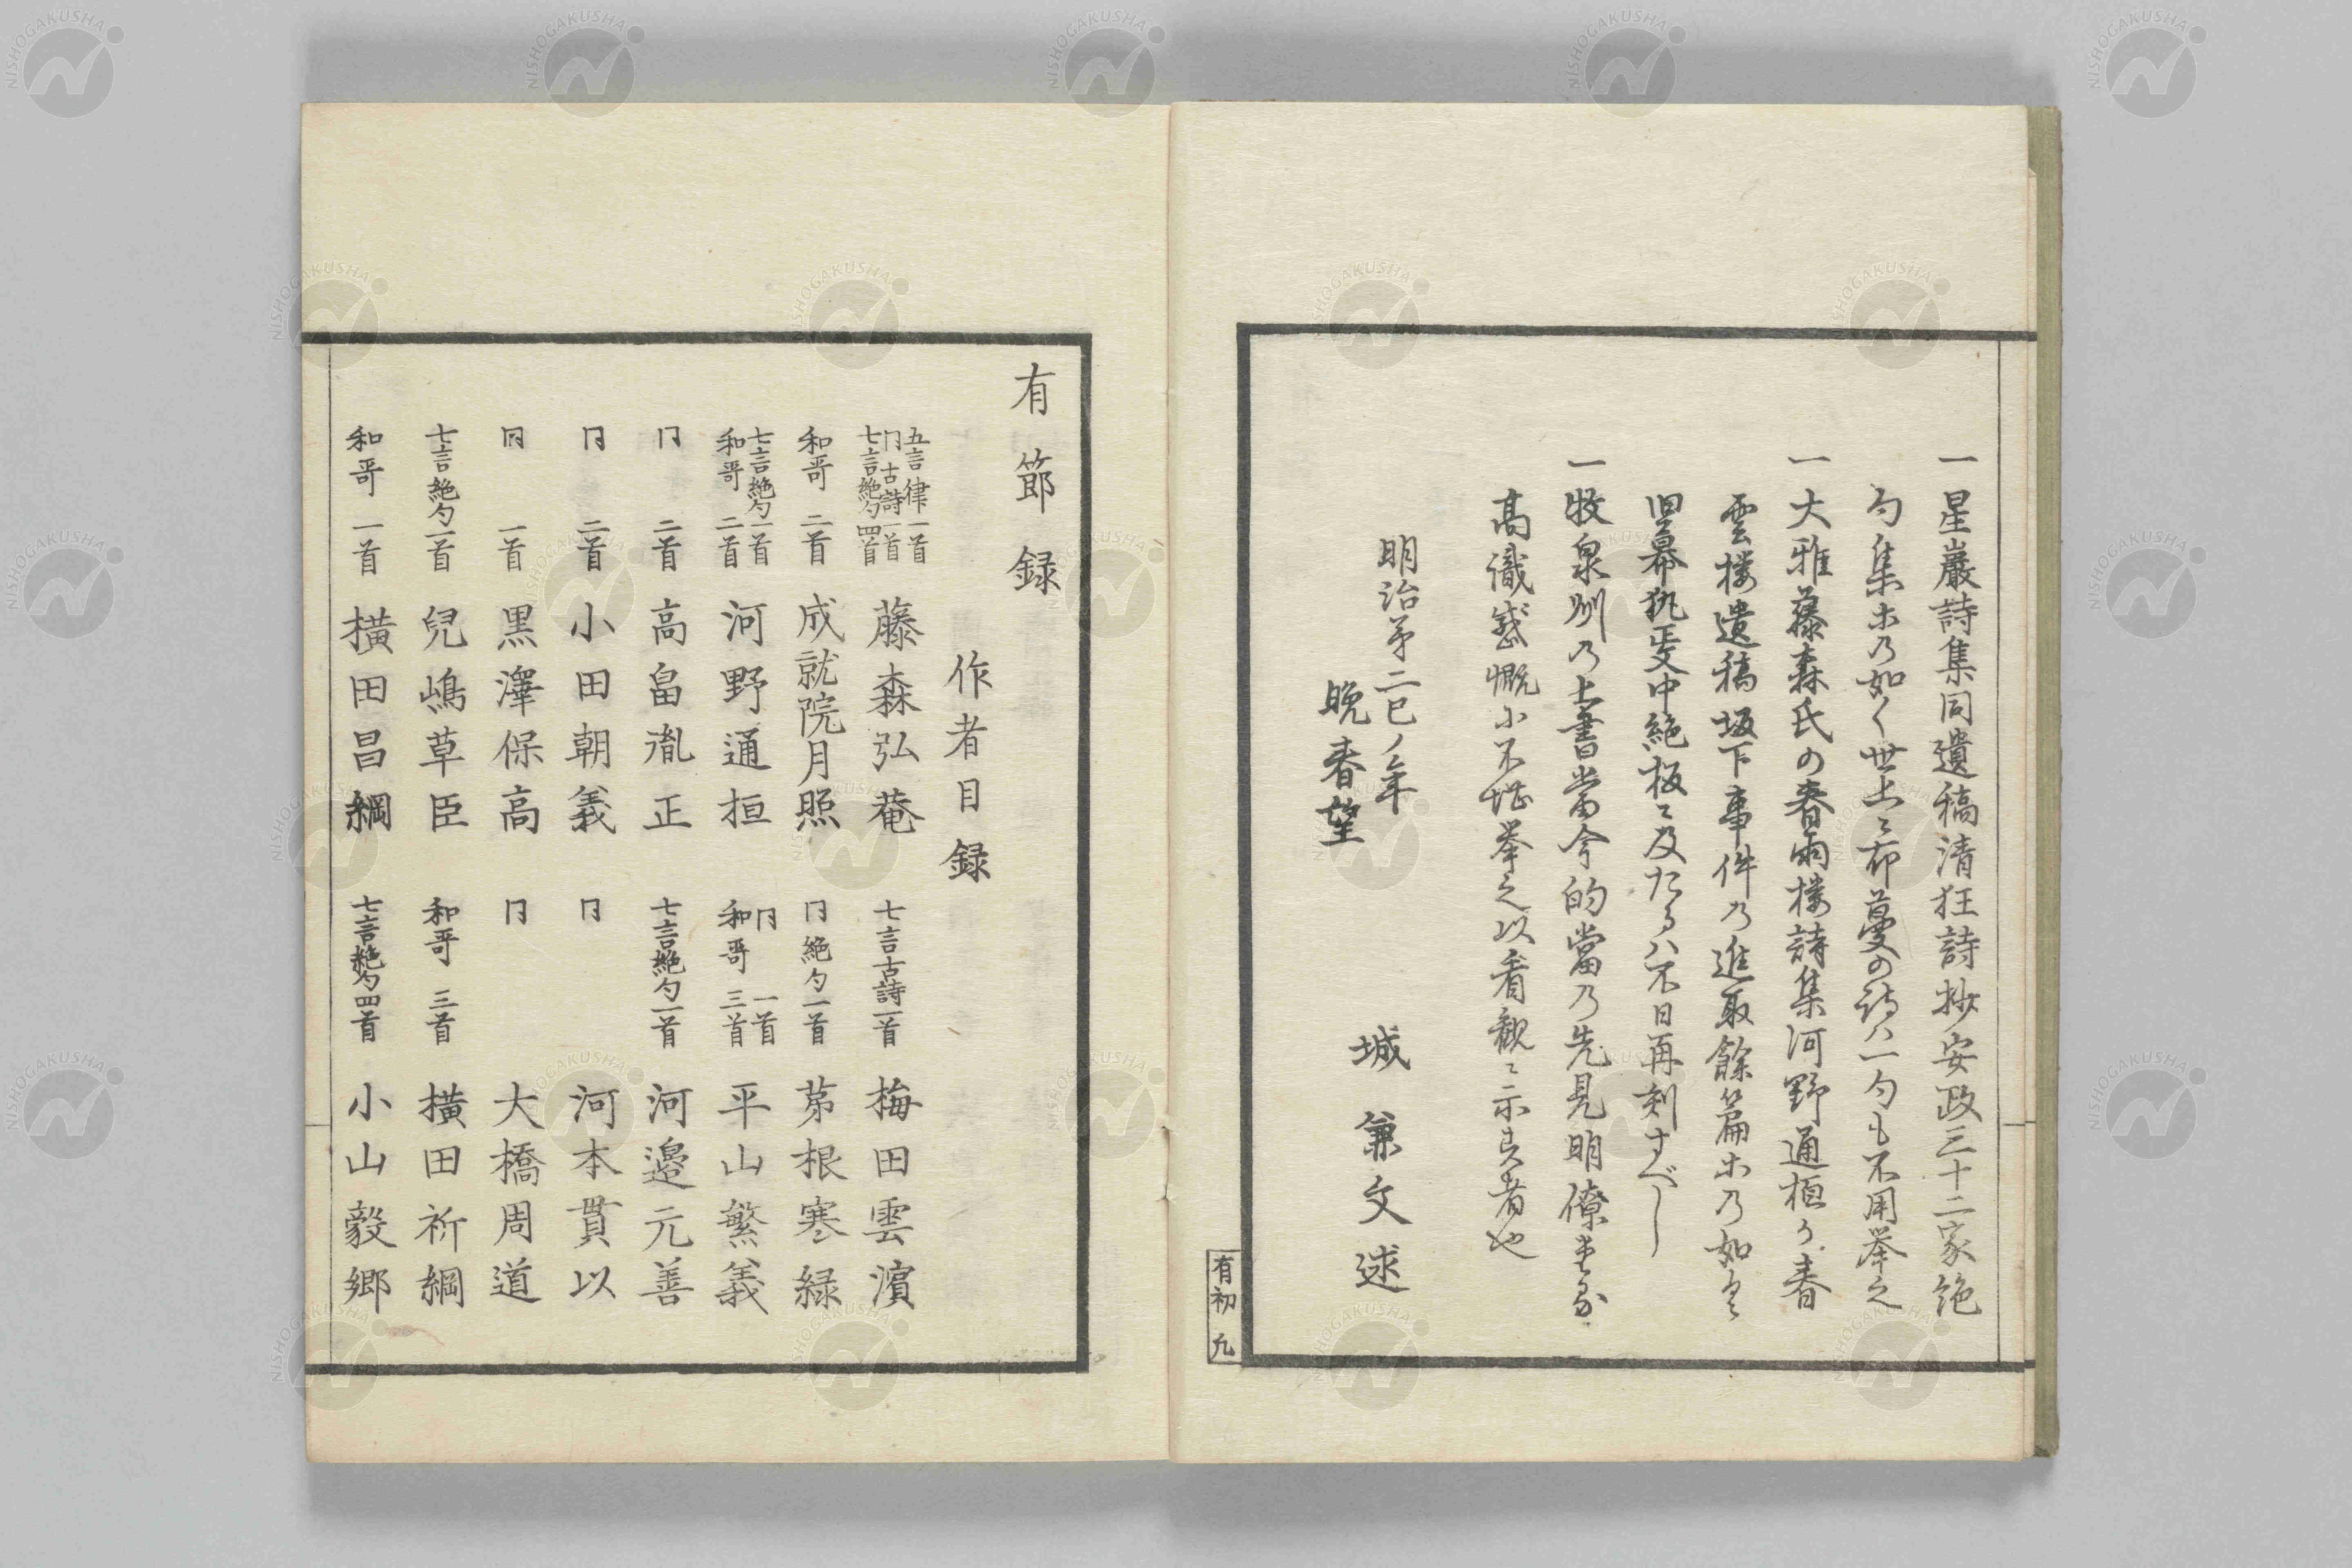 一星巖詩集同遺稿清狂詩抄安政三十二家絶
句集ホ乃如く世上ニ布蔓の詩ハ一句も不用挙之
一大雅藤森氏の春雨楼詩集河野通桓か春
雲楼遺稿坂下事件乃進取餘篇ホ乃如き
旧幕執叓中絶板ニ及たるハ不日再刻すべし
一牧泉州乃上書當今的當乃先見明僚
高識感慨小不堪挙之以看観ニ示者也
明治第二巳ノ年
晩春望
城兼文述
有初 九
有節録
作者目録
五言律一首
冂古詩一首
七言絶句四首
藤森弘菴
七言古詩一首
梅田雲濵
和哥 二首
成就院月照
冂絶句一首
茅根寒緑
七言絶句一首
和哥 二首
河野通桓
冂 一首
和哥 三首
平山繁義
冂 二首
高畠胤正
七言絶句一首
河邉元善
冂 二首
小田朝義
冂
河本貫以
同 一首
黒澤保高
冂
大橋周道
七言絶句一首
兒嶋草臣
和哥 三首
横田祈綱
和哥 一首
横田昌綱
七言絶句四首
小山毅郷
NISHOGAKUSHA